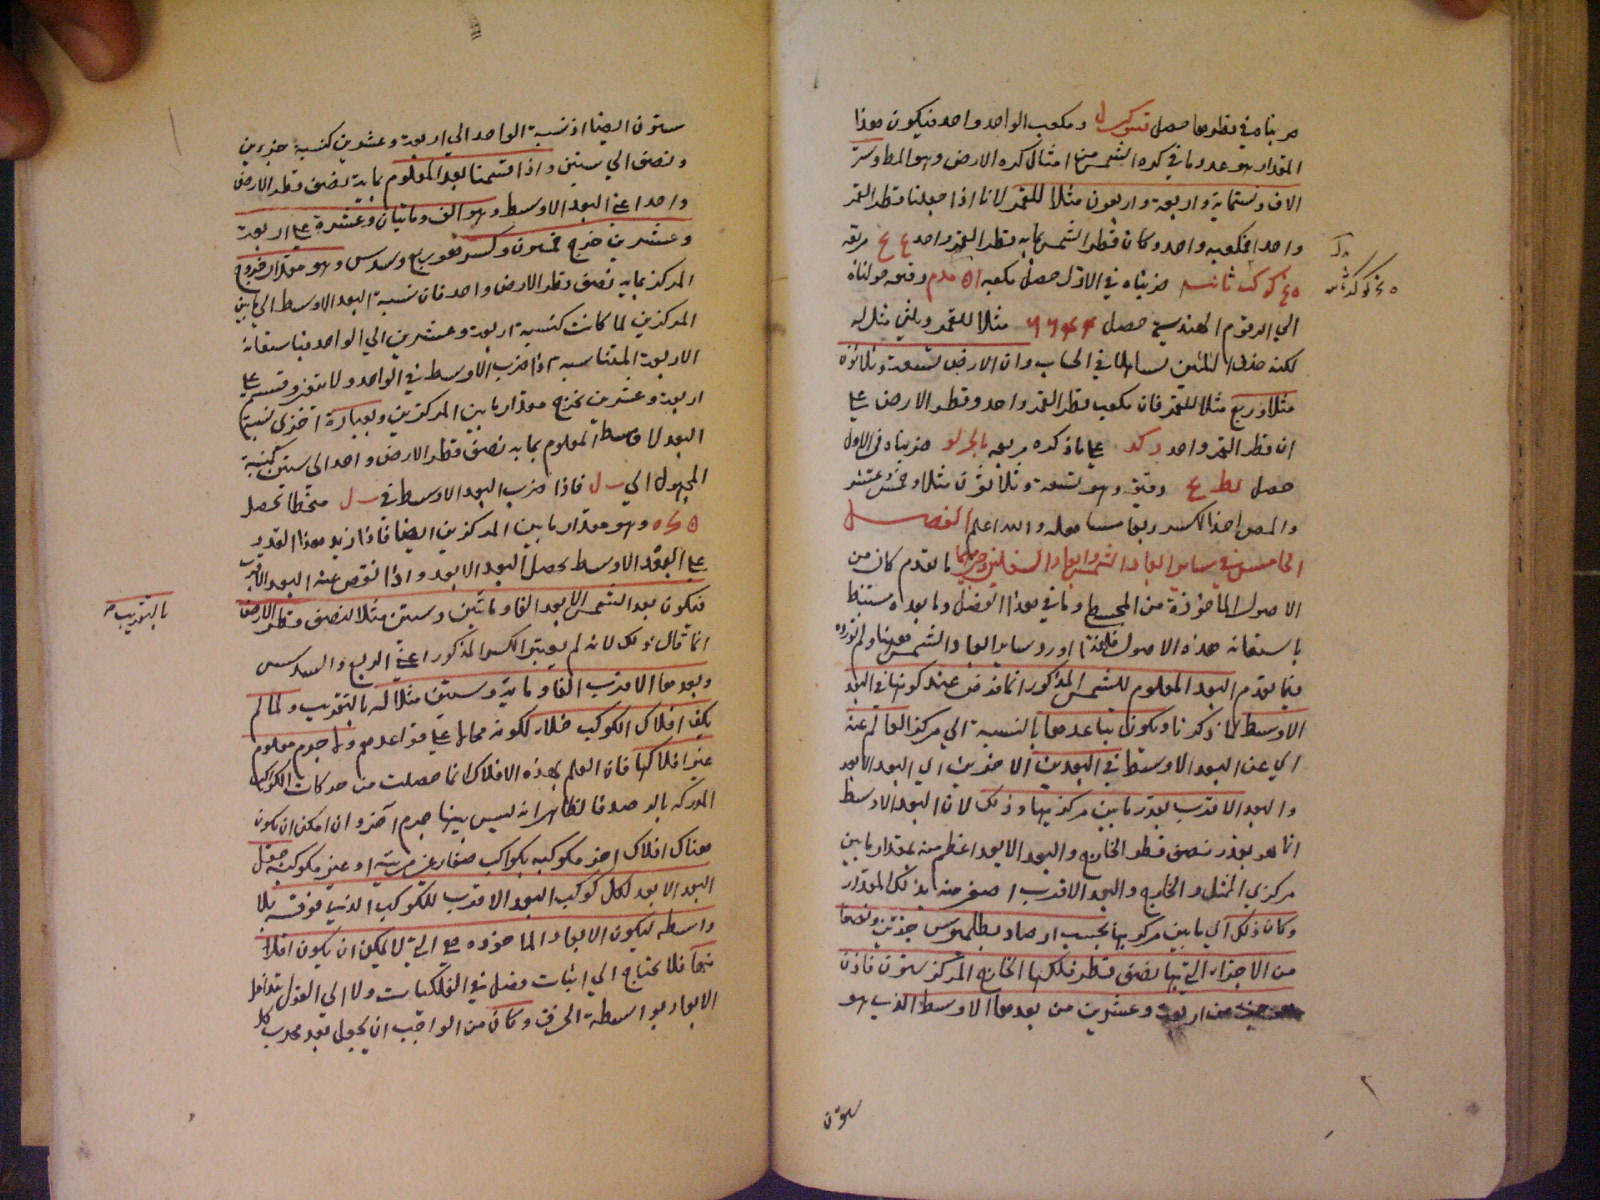 ضربناه في قطرها حصل ومكعب الواحد واحد فيكون هذا
المقدار هو عدد ما في كرة الشمس من امثال كرة الارض وهو المط وستة
الاف وستمائة واربعة واربعون مثلا للقمر لانا اذا جعلنا قطر القمر
واحدا فمكعبه واحد وكان قطر الشمس بما به قطر القمر واحد مربعه
ثانية ضربناه في الاول حصل مكعبه دقيقه حولناه
الى الرقوم الهندسية حصل ٦٦٤٤ مثلا للقمر وبلغني مثل له
لكنه حذف الثلثين تساهلا في الحساب وان الارض تسعة وثلاثون
مثلا وربع مثلا للقمر فان مكعب قطر القمر واحد وقطر الارض على
ان قطر القمر واحد على ما ذكره مربعه ضربناه في الاول
حصل دقيقه وهو تسعة وثلاثون مثلا وخمس وعشر
والمص اخذ الكسر ربعا مسامحة والله اعلم الفصل
الخامس في ساير ابعاد الشمس وابعاد السفليين وجرميهما ما تقدم كان من
الاصول الماخوذة من المجسطي وما في هذا الفصل وما بعده مستنبط
باستعانة هذه الاصول فلهذا اورد ساير ابعاد الشمس ههنا ولم يورده
فيما تقدم البعد المعلوم للشمس المذكور انما فرض عند كونها في البعد
الاوسط لما ذكرنا ويكون تباعدها بالنسبة الى مركز العالم عنه
اي عن البعد الاوسط في البعدين الاخرين اي البعد الابعد
والبعد الاقرب بقدر ما بين مركزيها وذلك لان البعد الاوسط
انما هو بقدر نصف قطر الخارج والبعد الابعد اعظم منه بمقدار ما بين
مركزي الممثل والخارج والبعد الاقرب اصغر منه بذلك المقدار
وكان ذلك اي ما بين مركزيها بحسب ارصاد بطلميوس جزئين ونصفا
من الاجزاء التي بها نصف قطر فلكها الخارج المركز ستون فاذن
من اربعة وعشرين من بعدها الاوسط الذي هو
ستون
ستون ايضا اذ نسبة الواحد الى اربعة وعشرين كنسبة جزءين
ونصف الى ستين واذا قسمنا البعد المعلوم بما به نصف قطر الارض
واحد اعني البعد الاوسط وهو الف ومائتان وعشرة على اربعة
وعشرين خرج خمسون وكسر هو ربع وسدس وهو مقدار خروج
المركز بما به نصف قطر الارض واحد فان نسبة البعد الاوسط الى ما بين
المركزين لما كانت كنسبة اربعة وعشرين الى الواحد فباستعانة
الاربعة المتناسبة اذا ضرب الاوسط في الواحد ولا يتغير وقسم على
اربعة وعشرين يخرج مقدار ما بين المركزين وبعبارة اخرى نسبة
البعد الاوسط المعلوم بما به نصف قطر الارض واحد الى ستين كنسبة
المجهول الى ب ل فاذا ضرب البعد الاوسط في ب ل منحطا تحصل
وهو مقدار ما بين المركزين ايضا فاذا زيد هذا القدر
على البعد الاوسط يحصل البعد الابعد واذا نقص عنه البعد الاقرب
فيكون بعد الشمس الابعد الفا ومائتين وستين مثلا لنصف قطر الارض
بالتقريب صح
انما قال ذلك لانه لم يعتبر الكسر المذكور اعني الربع والسدس
وبعدها الاقرب الفا ومائة وستين مثلا له بالتقريب ولما لم
يكن افلاك الكواكب خلاء لكونه محالا على قواعدهم ولا جرم معلوم
غير افلاكها فان العلم بهذه الافلاك انما حصلت من حركات الكواكب
المدركة بالرصد فالظاهر انه ليس بينها جرم آخر وان امكن ان يكون
هناك افلاك اخر مكوكبة بكواكب صغار غير مرئية او غير مكوكبة جعل
البعد الابعد لكل كوكب البعد الاقرب للكوكب الذي فوقه بلا
واسطة ليكون الابعاد الماخوذه هي التي لا يمكن ان يكون اقل
منها فلا يحتاج الى اثبات فضل في الفلكيات ولا الى القول بتداخل
الابعاد بواسطة الخرق وكان من الواجب ان يجعل بعد محدب كل